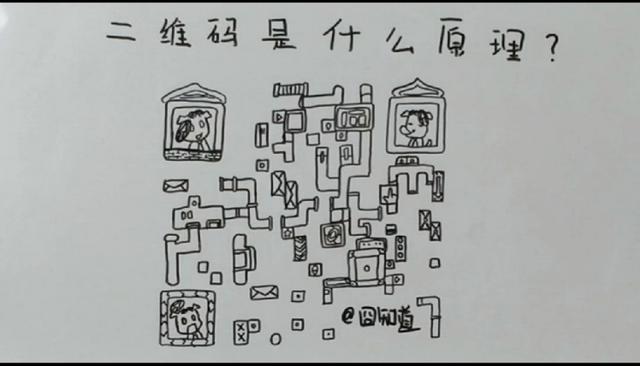 二维码是什么原理？
@囧知道